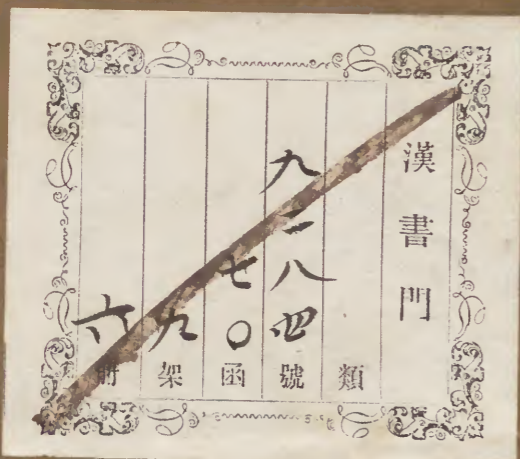 漢書門
類
九二八四號
七〇函
九架
六冊